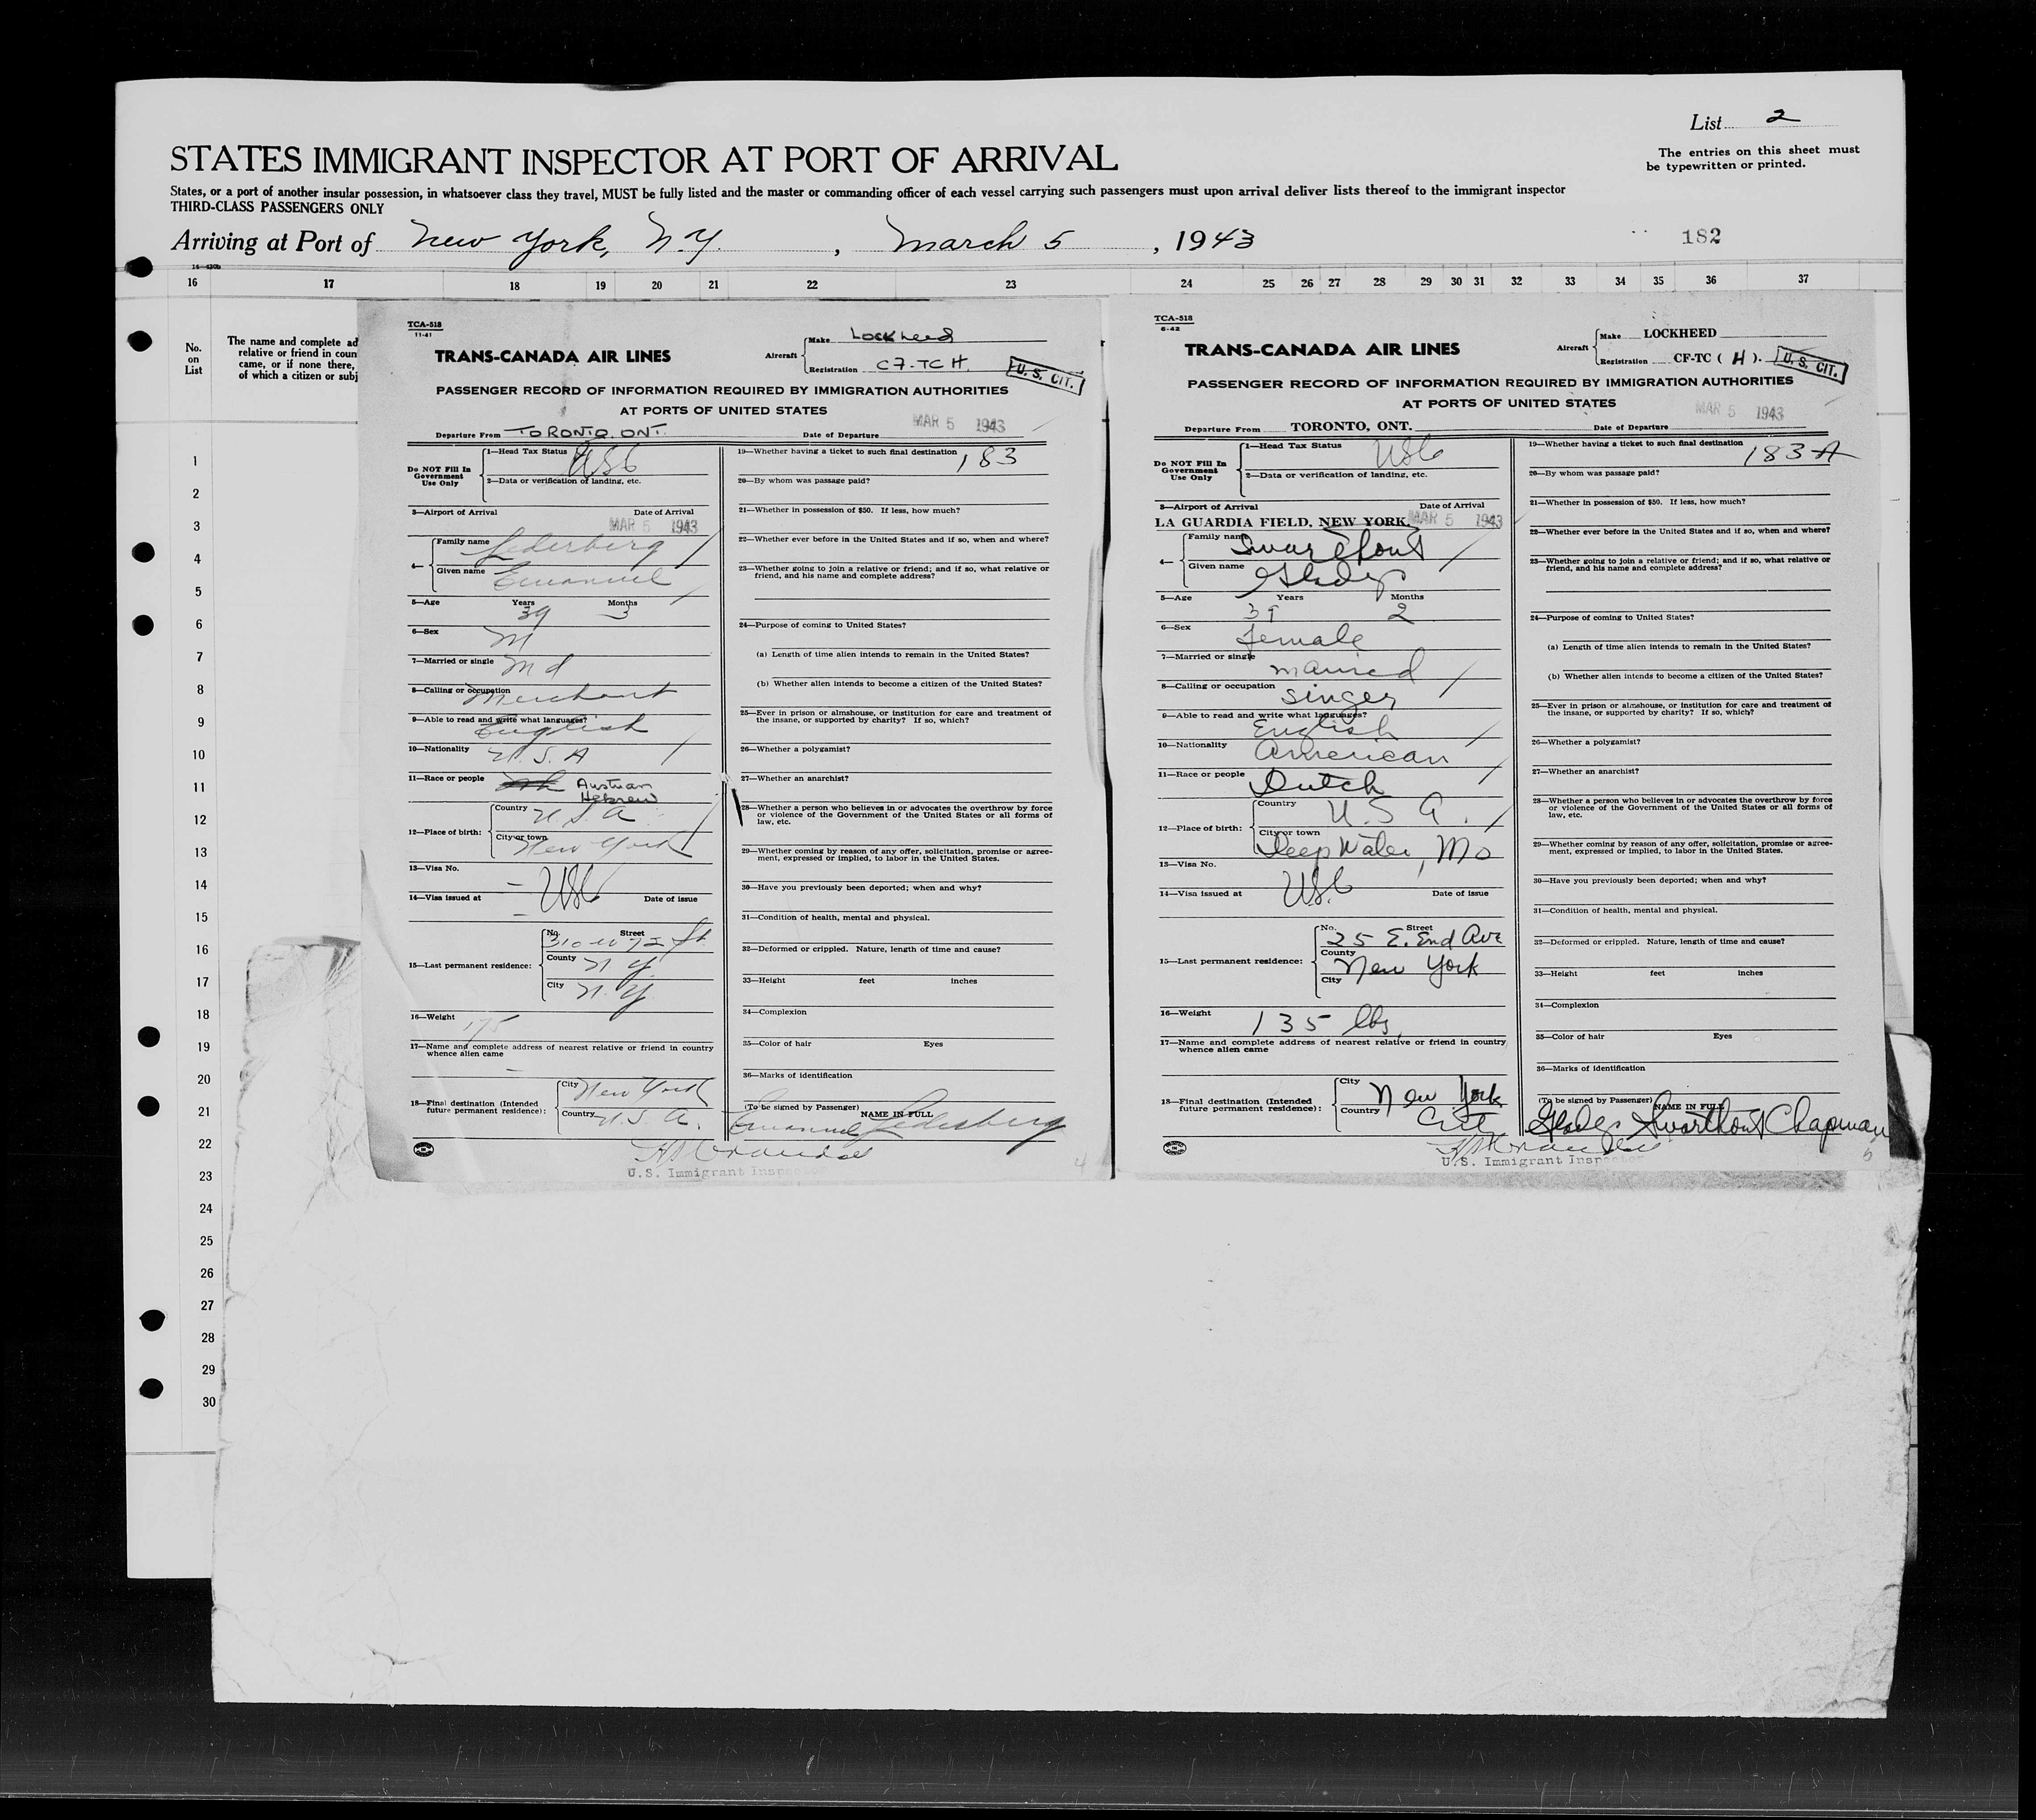 List 2
The entries on this sheet must
be typewritten or printed.
STATES IMMIGRANT INSPECTOR AT PORT OF ARRIVAL
States, or a port of another insular possession, in whatsoever class they travel, MUST be fully listed and the master or commanding officer of each vessel carrying such passengers must upon arrival deliver lists thereof to the immigrant inspector
THIRD-CLASS PASSENGERS ONLY
Arriving at Port of New York, N.Y. , March 5 , 1943
182
16 17 18 19 20 21 22 23 24 25 26 27 28 29 30 31 32 33 34 35 36 37
No.
on
List
The name and complete ad
relative or friend in coun
came, or if none there,
of which a citizen or subj
1
2
3
4
5
6
7
8
9
10
11
12
13
14
15
16
17
18
19
20
21
22
23
24
25
26
27
28
29
30
TCA-518
11-41
TRANS-CANADA AIR LINES
Aircraft
Make Lockheed
Registration C7-TCH.
U. S. CIT.
PASSENGER RECORD OF INFORMATION REQUIRED BY IMMIGRATION AUTHORITIES
AT PORTS OF UNITED STATES
MAR 5 1943
Departure From TORONTO, ONT. Date of Departure
Do NOT Fill In
Government
Use Only
1—Head Tax Status USC
2—Data or verification of landing, etc.
3—Airport of Arrival Date of Arrival
MAR 5 1943
4—
Family name Lederberg
Given name Emanuel
5—Age Years Months
39 3
6—Sex M
7—Married or single Md
8—Calling or occupation Merchant
9—Able to read and write what languages?
English
10—Nationality U.S.A
11—Race or people Austrian
Hebrew
12—Place of birth:
Country U S A
City or town New York
13—Visa No. —
14—Visa issued at — USC Date of issue
15—Last permanent residence:
No. Street
310 W 72 St.
County N Y
City N. Y
16—Weight 175
17—Name and complete address of nearest relative or friend in country
whence alien came
—
18—Final destination (Intended
future permanent residence):
City New York
Country U. S. A.
19—Whether having a ticket to such final destination 183
20—By whom was passage paid?
21—Whether in possession of $50. If less, how much?
22—Whether ever before in the United States and if so, when and where?
23—Whether going to join a relative or friend; and if so, what relative or
friend, and his name and complete address?
24—Purpose of coming to United States?
(a) Length of time alien intends to remain in the United States?
(b) Whether alien intends to become a citizen of the United States?
25—Ever in prison or almshouse, or institution for care and treatment of
the insane, or supported by charity? If so, which?
26—Whether a polygamist?
27—Whether an anarchist?
28—Whether a person who believes in or advocates the overthrow by force
or violence of the Government of the United States or all forms of
law, etc.
29—Whether coming by reason of any offer, solicitation, promise or agree-
ment, expressed or implied, to labor in the United States.
30—Have you previously been deported; when and why?
31—Condition of health, mental and physical.
32—Deformed or crippled. Nature, length of time and cause?
33—Height feet inches
34—Complexion
35—Color of hair Eyes
36—Marks of identification
(To be signed by Passenger) NAME IN FULL
Emanuel Lederberg
U.S. Immigrant Inspector
4
TCA-518
6-42
TRANS-CANADA AIR LINES
Aircraft
Make LOCKHEED
Registration CF-TC ( H ).
U. S. CIT.
PASSENGER RECORD OF INFORMATION REQUIRED BY IMMIGRATION AUTHORITIES
AT PORTS OF UNITED STATES
MAR 5 1943
Departure From TORONTO, ONT. Date of Departure
Do NOT Fill In
Government
Use Only
1—Head Tax Status USC
2—Data or verification of landing, etc.
3—Airport of Arrival Date of Arrival
LA GUARDIA FIELD, NEW YORK. MAR 5 1943
4—
Family name Swarthout
Given name Gladys
5—Age Years Months
39 2
6—Sex female
7—Married or single married
8—Calling or occupation singer
9—Able to read and write what languages?
English
10—Nationality American
11—Race or people Dutch
12—Place of birth:
Country U. S A.
City or town Deep Water, Mo
13—Visa No.
14—Visa issued at USC Date of issue
15—Last permanent residence:
No. Street
25 E. End Ave
County
New York
City
16—Weight 135 lbs.
17—Name and complete address of nearest relative or friend in country
whence alien came
18—Final destination (Intended
future permanent residence):
City New York
Country City
19—Whether having a ticket to such final destination
183 A
20—By whom was passage paid?
21—Whether in possession of $50. If less, how much?
22—Whether ever before in the United States and if so, when and where?
23—Whether going to join a relative or friend; and if so, what relative or
friend, and his name and complete address?
24—Purpose of coming to United States?
(a) Length of time alien intends to remain in the United States?
(b) Whether alien intends to become a citizen of the United States?
25—Ever in prison or almshouse, or institution for care and treatment of
the insane, or supported by charity? If so, which?
26—Whether a polygamist?
27—Whether an anarchist?
28—Whether a person who believes in or advocates the overthrow by force
or violence of the Government of the United States or all forms of
law, etc.
29—Whether coming by reason of any offer, solicitation, promise or agree-
ment, expressed or implied, to labor in the United States.
30—Have you previously been deported; when and why?
31—Condition of health, mental and physical.
32—Deformed or crippled. Nature, length of time and cause?
33—Height feet inches
34—Complexion
35—Color of hair Eyes
36—Marks of identification
(To be signed by Passenger) NAME IN FULL
Gladys Swarthout Chapman
U.S. Immigrant Inspector
5